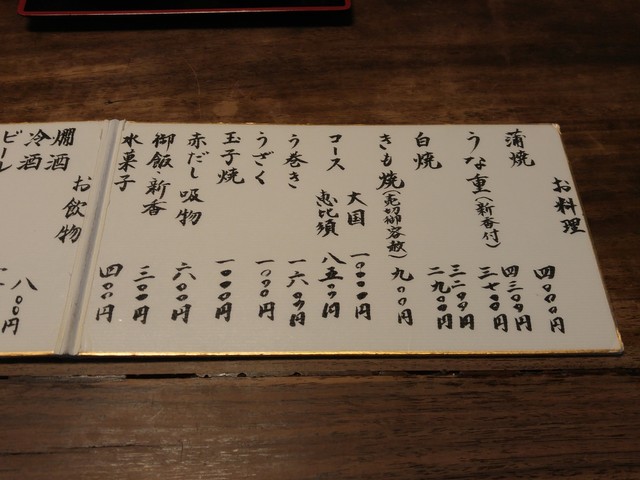 お料理
蒲焼 四〇〇〇円
うな重(新香付) 四三〇〇円
三七〇〇円
白焼 三二〇〇円
二九〇〇円
きも焼(売切御容赦) 九〇〇円
コース 大国 一〇〇〇〇円
恵比須 八五〇〇円
う巻き 一六〇〇円
うざく 一〇〇〇円
玉子焼 一〇〇〇円
赤だし 吸物 六〇〇円
御飯・新香 三〇〇円
水菓子 四〇〇円
お飲物
燗酒 八〇〇円
冷酒
ビール